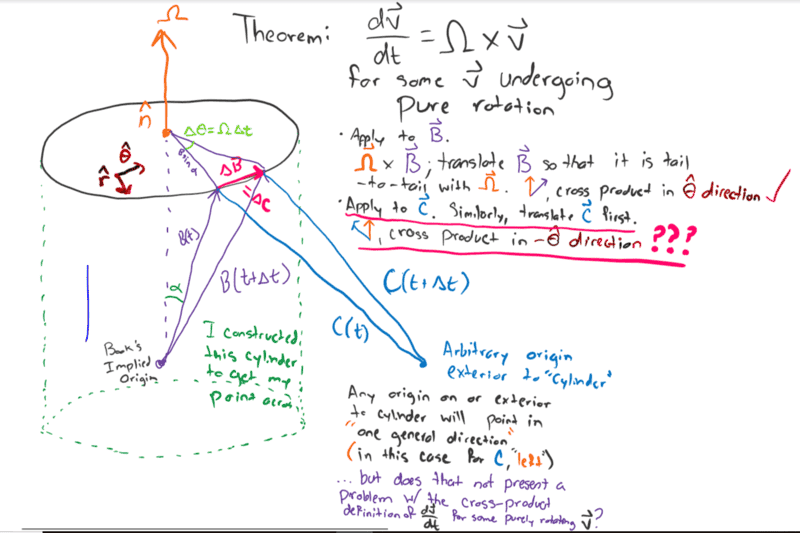 Ω
Theorem: dv⃗/dt = Ω × v⃗
for some v⃗ undergoing
pure rotation
n̂
Δθ = ΩΔt
B sin α
θ̂
r̂
ΔB⃗
= ΔC
• Apply to B⃗.
Ω⃗ × B⃗; translate B⃗ so that it is tail
-to-tail with Ω⃗. , cross product in θ̂ direction ✓
• Apply to C⃗. Similarly, translate C⃗ first.
, cross product in -θ̂ direction ???
B(t)
B(t+Δt)
C(t+Δt)
C(t)
α
Book's
Implied
Origin
I constructed
this cylinder
to get my
point across
Arbitrary origin
exterior to "Cylinder"
Any origin on or exterior
to cylinder will point in
"one general direction"
(in this case for C, "left")
... but does that not present a
problem w/ the cross-product
definition of dv⃗/dt for some purely rotating v⃗?